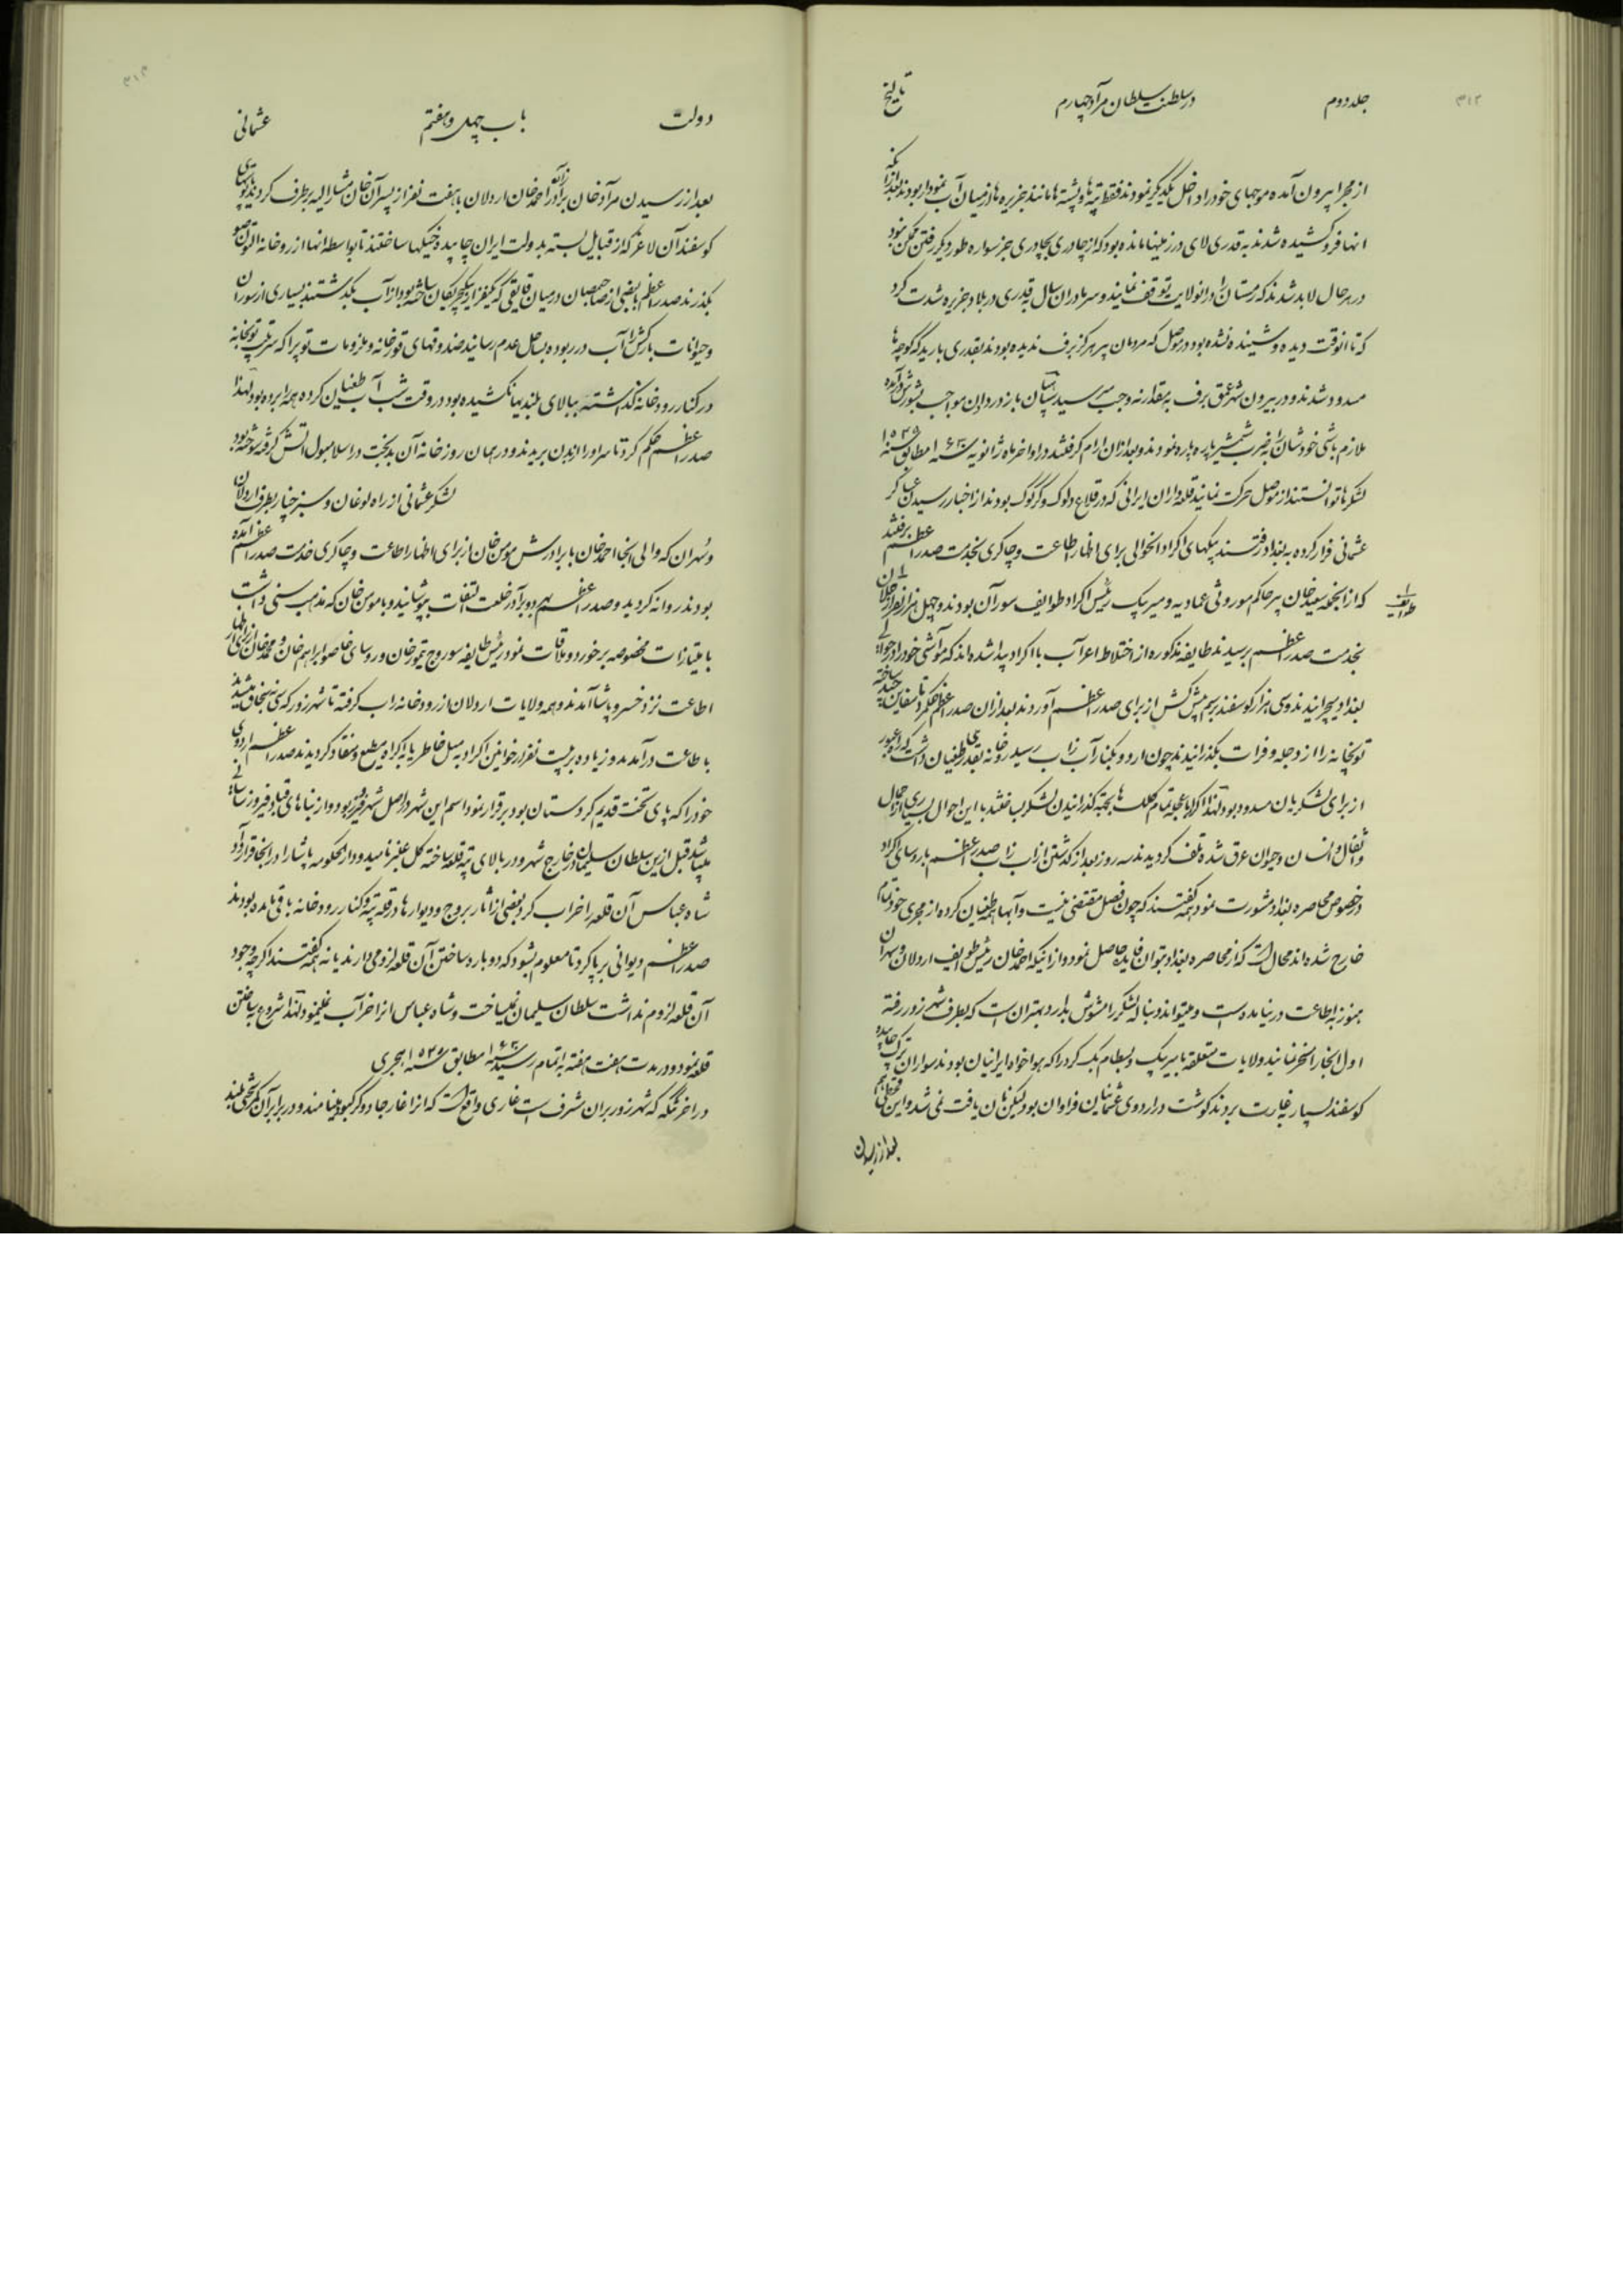 ۳۱۲
جلد دوم در سلطنت سلطان مراد چهارم تاریخ
از مجرا بیرون آمده موجهای خود را داخل یکدیگر نمودند فقط تپه ها و پشته ها مانند جزیره ها از میان آب نمودار بودند بعد از آنکه
انها فروکشیده شدند بقدری لای در زمینها مانده بود که از چادری بچادری جز سواره طور دیگر رفتن ممکن نبود
در هر حال لابد شدند که زمستان را در انولایت توقف نمایند و سرما در ان سال بقدری در بلاد جزیره شدت کرد
که تا انوقت دیده و شنیده نشده بود در موصل که مردمان پیر هرگز برف ندیده بودند بقدری بارید که کوچه ها
مسدود شدند و در بیرون شهر عمق برف به مقدار نه وجب میرسید سپاهیان باز در دادن مواجب بشورش آمده
ملازم باشی خودشان را بضرب شمشیر پاره پاره نمودند و بعد از ان ارام گرفتند در اواخر ماه ژانویه سنه ۱۶۳۰ مطابق سنه ۱۰۳۹
لشکرها توانستند از موصل حرکت نمایند قلعه داران ایرانی که در قلاع دلوک و کرکوک بودند از اخبار رسیدن عساکر
عثمانی فرار کرده به بغداد رفتند بیکهای اکراد انحوالی برای اظهار اطاعت و چاکری بخدمت صدر اعظم برفتند
که از انجمله سعید خان پسر حاکم موروثی عمادیه و میر بیک رئیس اکراد طوایف سوران بودند و چهل هزار نفر از
طوایف
بخدمت صدر اعظم برسیدند طایفه مذکوره از اختلاط اعراب با اکراد پیدا شده اند که مواشی خود را در حوالی
بغداد بچرانیدند و سی هزار کوسفند برسم پیش کش از برای صدر اعظم آوردند بعد از ان صدر اعظم حکم کرد تا سفاین چند ساخته
توپخانه را از دجله و فرات بگذرانیدند چون اردو بکنار آب زاب رسید رودخانه بقدری طغیان داشت که راه عبور
از برای لشکریان مسدود بود لهذا اکراد بعجله تمام کلک ها بجهة گذرانیدن لشکر بساختند با این احوال بسیاری از احمال
و اثقال و انسان و حیوان غرق شده تلف گردیدند سه روز بعد از گذشتن از آب زاب صدر اعظم با روسای اکراد
در خصوص محاصره بغداد مشورت نمود همه گفتند که چون فصل مقتضی نیست و آبها همه طغیان کرده از مجری خود تمام
خارج شده اند محال است که از محاصره بغداد بتوان فایده حاصل نمود و از اینکه احمد خان رئیس طوایف اردلان و سهران
هنوز به اطاعت در نیامده است و میتواند دنباله لشکر را مشوش بدارد بهتر ان است که بطرف شهرزور رفته
اول انجا را مسخر نمایند ولایات متعلقه با میر بیک و بسطام بیک کرد را که هواخواه ایرانیان بودند سواران ترک چاپیده
کوسفند بسیار بغارت بردند کوشت در اردوی عثمانیان فراوان بود لیکن نان یافت نمی شد و این قحطی هم
بعد از رسیدن
۳۱۳
دولت باب چهل و هفتم عثمانی
بعد از رسیدن مراد خان برادرزاده احمد خان اردلان با هفت نفر از پسران خان مشارالیه برطرف گردید پوستهای
کوسفندان لاغر که از قبایل بسته بدولت ایران چاپیده خیکها ساختند تا بواسطه انها از رودخانه التون صو
بگذرند صدر اعظم با بعضی از صاحبمنصبان در میان قایقی که یکنفر از ینکچریان ساخته بود از آب بگذشتند بسیاری از سواران
و حیوانات بارکش را آب در ربوده بساحل عدم رسانید صندوقهای قورخانه و ملزومات توپ را که سرتیپ توپخانه
در کنار رودخانه گذاشته ببالای بلندیها نکشیده بود در وقت شب آب طغیان کرده همه را برده بود لهذا
صدر اعظم حکم کرد تا سر او را از بدن بریدند و در همان روز خانه آن بدبخت در اسلامبول اتش گرفته سوخته بود
لشکر عثمانی از راه لوغان و سبز خیار بطرف اردلان
و سهران که والی انجا احمد خان با برادرش مومن خان از برای اظهار اطاعت و چاکری خدمت صدر اعظم آمده
بودند روانه گردید و صدر اعظم بهر دو برادر خلعت التفات بپوشانید و با مومن خان که مذهب سنی داشت
با امتیازات مخصوصه برخورد و ملاقات نمود رئیس طایفه سوروج تیمور خان و روسای خاصو ابراهیم خان و محمد خان از برای اظهار
اطاعت نزد خسرو پاشا آمدند و همه ولایات اردلان از رودخانه زاب گرفته تا شهرزور که سی سنجاق میشد
باطاعت درآمدند و زیاده بر بیست نفر از خوانین اکراد به میل خاطر یا به اکراه مطیع و منقاد گردیدند صدر اعظم اردوی
خود را که پای تخت قدیم کردستان بود برقرار نمود اسم این شهر در اصل شهر فیروز بود و از بناهای قباد فیروز ساسانی
میباشد قبل از این سلطان سلیمان در خارج شهر و در بالای تپه قلعه ساخته گل عنبر نامید و دارالحکومه پاشا را در انجا قرار داد
شاه عباس آن قلعه را خراب کرد بعضی از اثار بروج و دیوارها در قله تپه و کنار رودخانه باقی مانده بودند
صدر اعظم دیوانی برپا کرد تا معلوم بشود که دوباره ساختن آن قلعه لزومی دارند یا نه همه گفتند اگر چه وجود
آن قلعه لزوم نداشت سلطان سلیمان نمیساخت و شاه عباس انرا خراب نمینمود لهذا شروع به ساختن
قلعه نمود و در مدت هفت هفته به اتمام رسید سنه ۱۶۳۰ مطابق سنه ۱۰۳۹ هجری
در اخر تنگه که شهرزور بران مشرف است غاری واقع است که انرا غار جادوگر کبود مینامند و در برابر آن برجی بلند